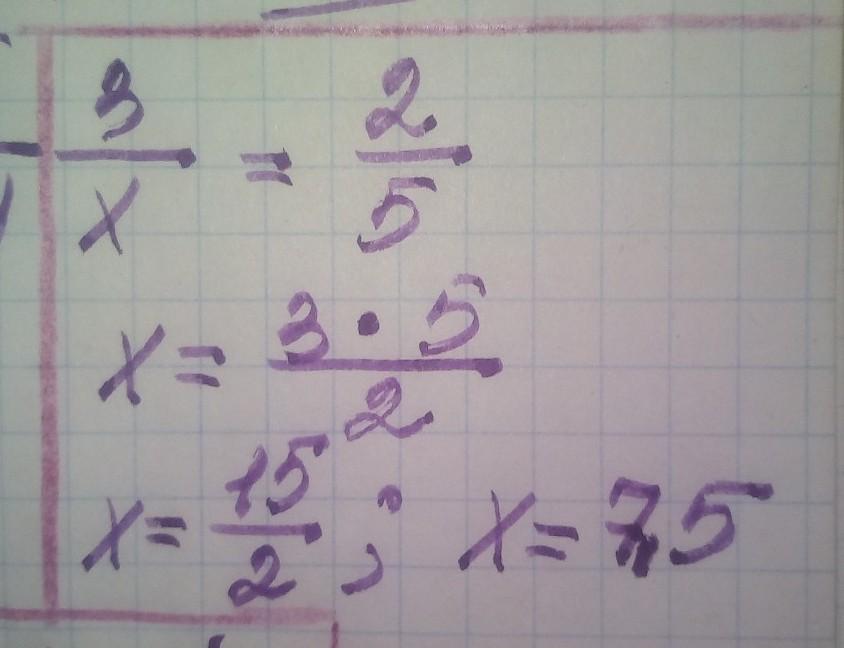 3/x = 2/5
x = 3·5/2
x = 15/2; x = 7,5